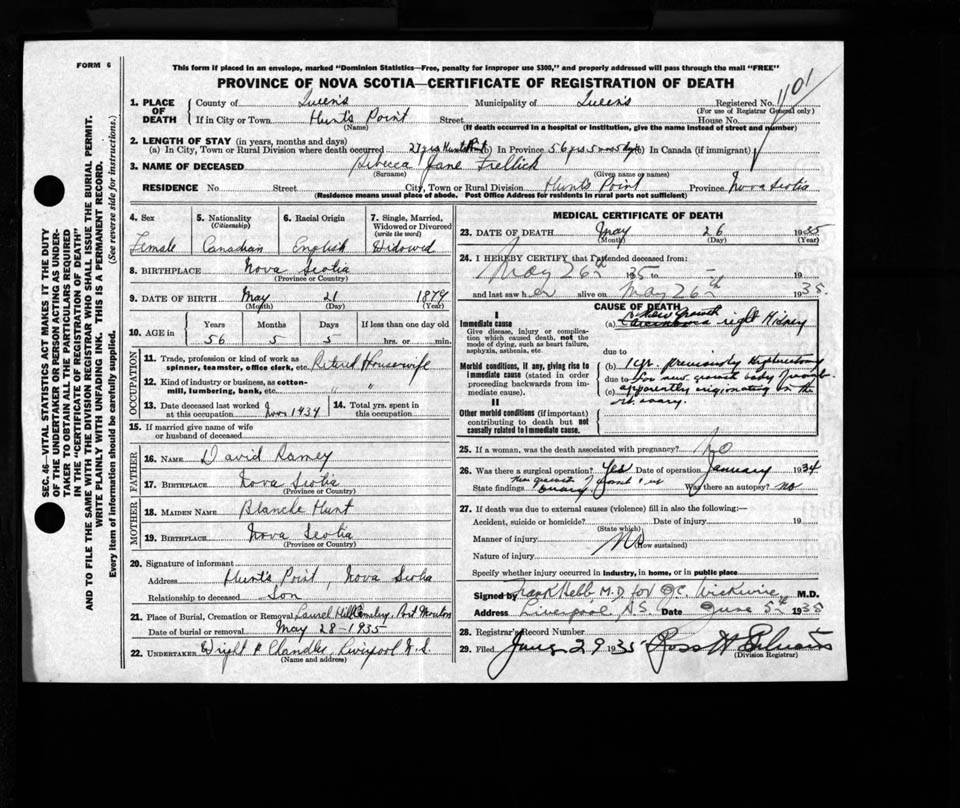 FORM 6
This form if placed in an envelope, marked "Dominion Statistics—Free, penalty for improper use $300," and properly addressed will pass through the mail "FREE"
PROVINCE OF NOVA SCOTIA—CERTIFICATE OF REGISTRATION OF DEATH
1. PLACE OF DEATH
County of Queen's Municipality of Queen's Registered No. 1101
(For use of Registrar General only)
If in City or Town Hunt's Point Street House No.
(Name) (If death occurred in a hospital or institution, give the name instead of street and number)
2. LENGTH OF STAY (in years, months and days)
(a) In City, Town or Rural Division where death occurred 27 yrs (b) In Province 56 yrs 5 mos 5 (c) In Canada (if immigrant)
3. NAME OF DECEASED Rebecca Jane Frellick
(Surname) (Given name or names)
RESIDENCE No Street City, Town or Rural Division Hunt's Point Province Nova Scotia
(Residence means usual place of abode. Post Office Address for residents in rural parts not sufficient)
4. Sex
Female
5. Nationality
(Citizenship)
Canadian
6. Racial Origin
English
7. Single, Married, Widowed or Divorced
(write the word)
Widowed
8. BIRTHPLACE Nova Scotia
(Province or Country)
9. DATE OF BIRTH May 21 1879
(Month) (Day) (Year)
10. AGE in
Years Months Days If less than one day old
56 5 5 hrs. or min.
OCCUPATION
11. Trade, profession or kind of work as spinner, teamster, office clerk, etc. Retired Housewife
12. Kind of industry or business, as cotton-mill, lumbering, bank, etc. " "
13. Date deceased last worked at this occupation Nov 1934
14. Total yrs. spent in this occupation
15. If married give name of wife or husband of deceased
FATHER
16. NAME David Ramey
17. BIRTHPLACE Nova Scotia
(Province or Country)
MOTHER
18. MAIDEN NAME Blanche Hunt
19. BIRTHPLACE Nova Scotia
(Province or Country)
20. Signature of informant
Address Hunt's Point, Nova Scotia
Relationship to deceased Son
21. Place of Burial, Cremation or Removal Laurel Hill Cemetery, Port Mouton
Date of burial or removal May 28-1935
22. UNDERTAKER Wright & Chandler, Liverpool N.S.
(Name and address)
MEDICAL CERTIFICATE OF DEATH
23. DATE OF DEATH May 26 1935
(Month) (Day) (Year)
24. I HEREBY CERTIFY that I attended deceased from:
May 26th 1935 to - 19
and last saw her alive on May 26th 1935.
CAUSE OF DEATH
I
Immediate cause
Give disease, injury or complication which caused death, not the mode of dying, such as heart failure, asphyxia, asthenia, etc.
(a) New growth right Kidney
due to
Morbid conditions, if any, giving rise to immediate cause (stated in order proceeding backwards from immediate cause).
(b) 1 yr. previously Hysterectomy
due to for new growth body
(c) apparently originating in the
rt. ovary.
II
Other morbid conditions (if important) contributing to death but not causally related to immediate cause.
25. If a woman, was the death associated with pregnancy? No
26. Was there a surgical operation? Yes Date of operation January 1934
State findings New growth ovary Was there an autopsy? No
27. If death was due to external causes (violence) fill in also the following:—
Accident, suicide or homicide? Date of injury 19
(State which)
Manner of injury No
(How sustained)
Nature of injury
Specify whether injury occurred in industry, in home, or in public place
Signed by Frank Hebb M.D for Wickwire M.D.
Address Liverpool, N.S. Date June 5th 1935
28. Registrar's Record Number
29. Filed 29 1935 Ross
(Division Registrar)
SEC. 46—VITAL STATISTICS ACT MAKES IT THE DUTY
OF THE UNDERTAKER OR PERSON ACTING AS UNDER-
TAKER TO OBTAIN ALL THE PARTICULARS REQUIRED
IN THE "CERTIFICATE OF REGISTRATION OF DEATH"
AND TO FILE THE SAME WITH THE DIVISION REGISTRAR WHO SHALL ISSUE THE BURIAL PERMIT.
WRITE PLAINLY WITH UNFADING INK. THIS IS A PERMANENT RECORD.
Every item of information should be carefully supplied. (See reverse side for instructions.)